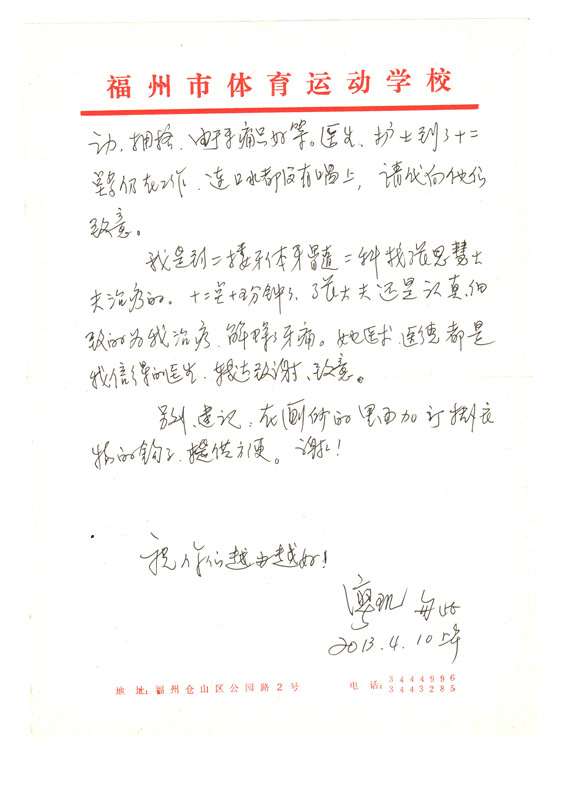 福州市体育运动学校
动、拥挤、由于牙痛只好等。医生、护士到了十二
点多仍在工作、连口水都没有喝上，请代向他们
致意。
我是到二楼牙体牙髓二科找张思慧大
夫治疗的。十二点十五分钟了、张大夫还是认真细
致的为我治疗、解除了牙痛。她医术、医德都是
我信得的医生、转达致谢、致意。
另外、建议、在厕所的里面加订掛衣
物的钩子、提供方便。谢谢！
祝你们越办越好！
2013.4.10上午
地址：福州仓山区公园路2号
电话：3444996
3443285